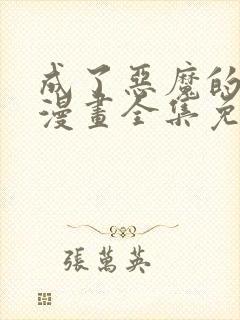 成了惡魔的
漫畫全集免
張萬英